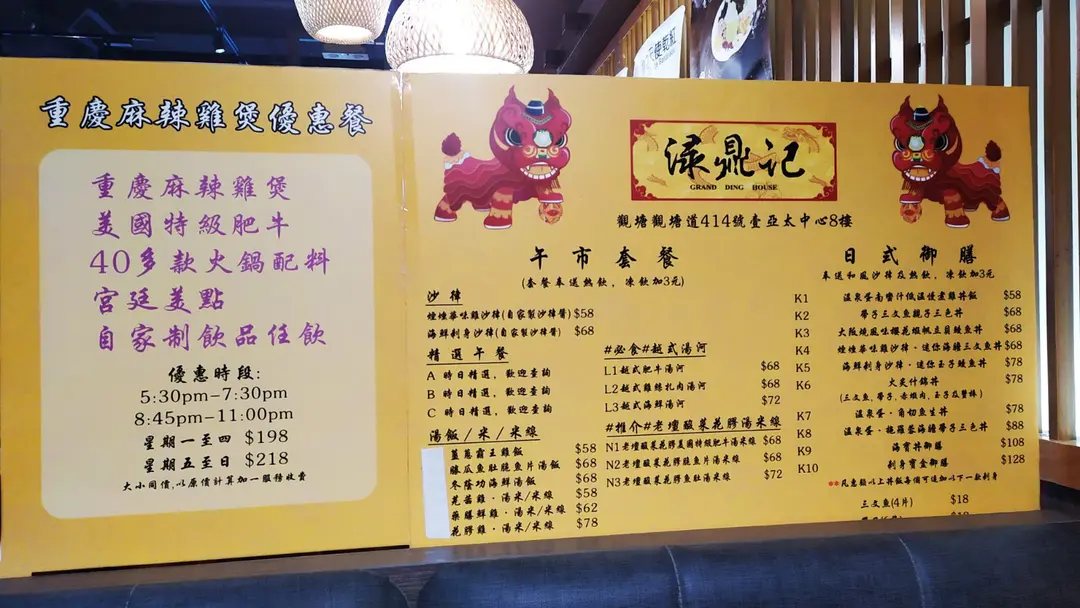 重慶麻辣雞煲優惠餐
重慶麻辣雞煲
美國特級肥牛
40多款火鍋配料
宮廷美點
自家制飲品任飲
優惠時段:
5:30pm-7:30pm
8:45pm-11:00pm
星期一至四 $198
星期五至日 $218
大小同價,以原價計算加一服務收費
渌鼎记
GRAND DING HOUSE
觀塘觀塘道414號壹亞太中心8樓
午市套餐
(套餐奉送熱飲,凍飲加3元)
沙律
煙煙華味雞沙律(自家製沙律醬) $58
海鮮刺身沙律(自家製沙律醬) $68
精選午餐
A 時日精選,歡迎查詢
B 時日精選,歡迎查詢
C 時日精選,歡迎查詢
湯飯/米/米線
薑蔥霸王雞飯 $58
勝瓜魚肚脆魚片湯飯 $68
冬蔭功海鮮湯飯 $68
芫茜雞·湯米/米線 $58
藥膳鮮雞·湯米/米線 $62
花膠雞·湯米/米線 $78
#必食#越式湯河
L1越式肥牛湯河 $68
L2越式雞絲扎肉湯河 $68
L3越式海鮮湯河 $72
#推介#老壇酸菜花膠湯米線
N1老壇酸菜花膠美國特級肥牛湯米線 $68
N2老壇酸菜花膠脆魚片湯米線 $68
N3老壇酸菜花膠魚肚湯米線 $72
日式御膳
奉送和風沙律及熱飲,凍飲加3元
K1 溫泉蛋南蠻汁低溫慢煮雞丼飯 $58
K2 帶子三文魚親子三色丼 $68
K3 大阪燒風味櫻花蝦帆立貝鰻魚丼 $68
K4 煙煙華味雞沙律·迷你海膽三文魚丼 $68
K5 海鮮刺身沙律·迷你玉子鰻魚丼 $78
K6 大炙什錦丼 $78
(三文魚,帶子,赤蝦肉,玉子及蟹棒)
K7 溫泉蛋·角切魚生丼 $78
K8 溫泉蛋·拖羅蓉海膽帶子三色丼 $88
K9 海寶丼御膳 $108
K10 刺身寶盒御膳 $128
**凡惠顧以上丼飯每個可追加以下一款刺身
三文魚(4片) $18